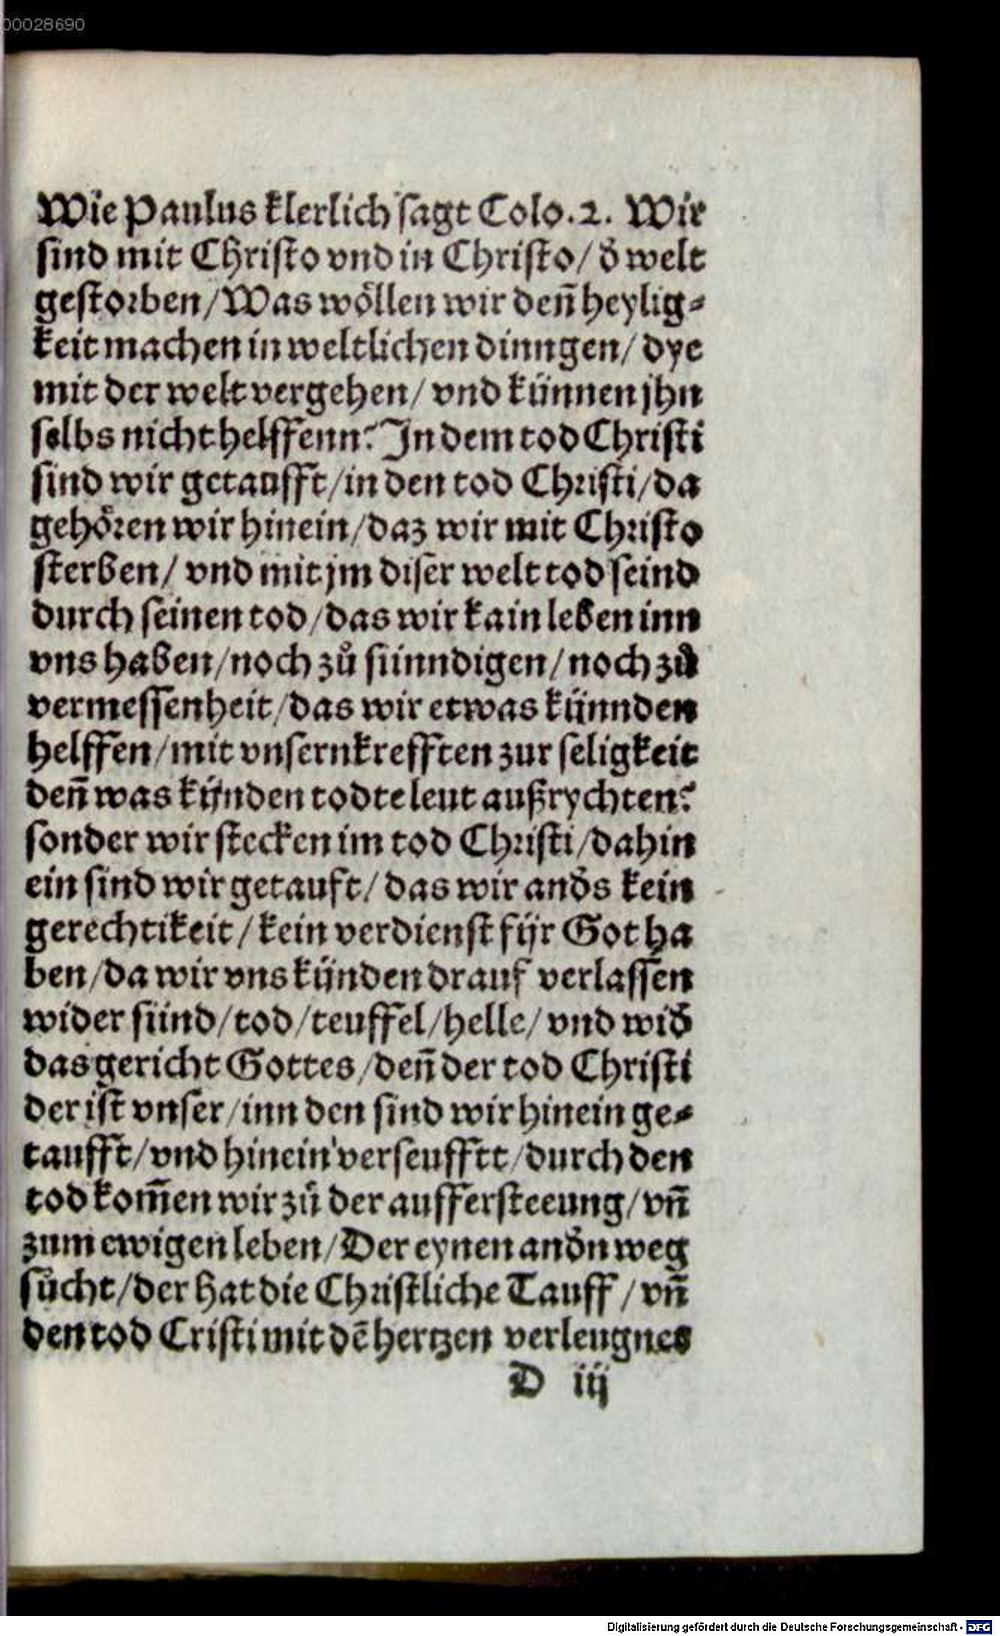 00028690
Wie Paulus klerlich sagt Colo.2. Wir
sind mit Christo vnd in Christo/ d̄ welt
gestorben/Was wöllen wir deñ heylig⸗
keit machen in weltlichen dinngen/ dye
mit der welt vergehen/ vnd künnen jhn
selbs nicht helffenn? In dem tod Christi
sind wir getaufft/in den tod Christi/da
gehören wir hinein/daz wir mit Christo
sterben/ vnd mit jm diser welt tod seind
durch seinen tod/das wir kain leben inn
vns haben/noch zů sünndigen/noch zů
vermessenheit/das wir etwas künnden
helffen/mit vnsern krefften zur seligkeit
deñ was künden todte leut außrychten?
sonder wir stecken im tod Christi/dahin
ein sind wir getauft/ das wir and̄s kein
gerechtikeit/kein verdienst für Got ha
ben/da wir vns künden drauf verlassen
wider sünd/tod/teuffel/helle/ vnd wid̄
das gericht Gottes/deñ der tod Christi
der ist vnser/inn den sind wir hinein ge⸗
taufft/vnd hinein verseufftt/durch den
tod kom̄en wir zů der auffersteeung/vñ
zum ewigen leben/Der eynen and̄n weg
sůcht/der hat die Christliche Tauff/vñ
den tod Cristi mit dē hertzen verleugnes
D iij
Digitalisierung gefördert durch die Deutsche Forschungsgemeinschaft - DFG